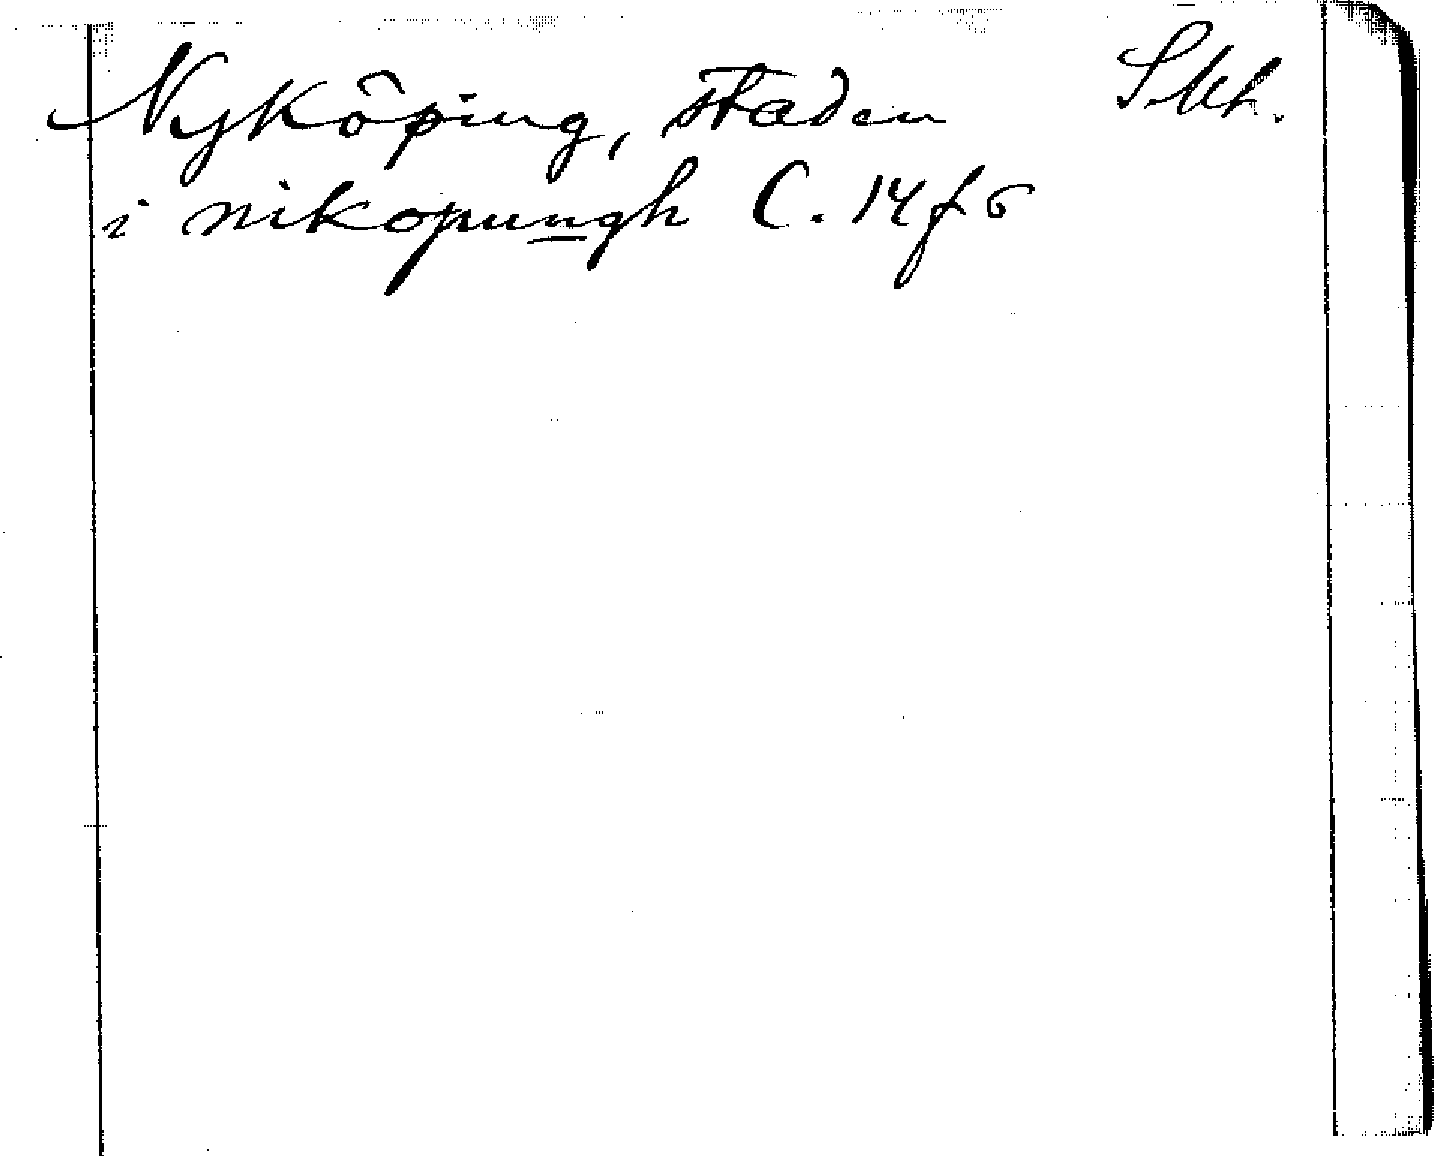 Nyköping, staden Skh.
i nikopungh C. 14 f 6